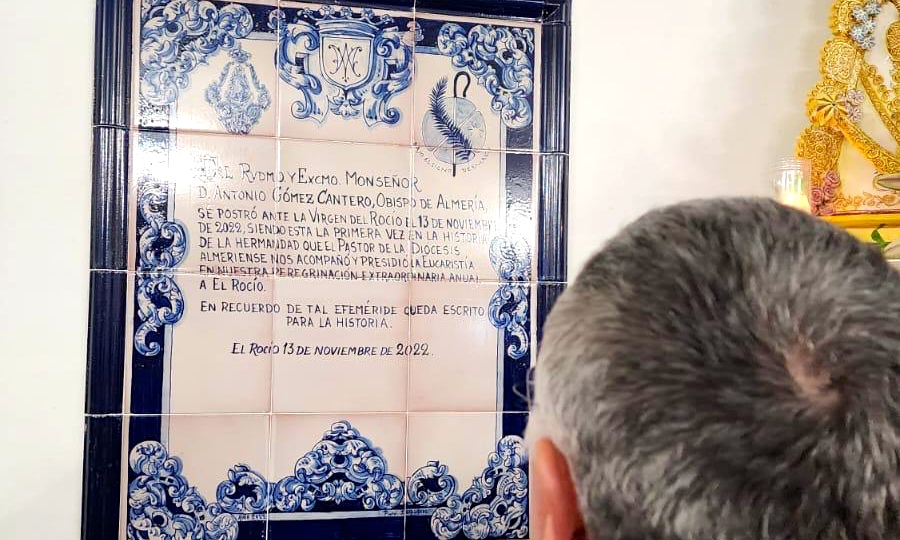 EL RVDMO Y EXCMO. MONSEÑOR
D. ANTONIO GÓMEZ CANTERO, OBISPO DE ALMERÍA,
SE POSTRÓ ANTE LA VIRGEN DEL ROCÍO EL 13 DE NOVIEMBRE
DE 2022, SIENDO ESTA LA PRIMERA VEZ EN LA HISTORIA
DE LA HERMANDAD QUE EL PASTOR DE LA DIÓCESIS
ALMERIENSE NOS ACOMPAÑÓ Y PRESIDIÓ LA EUCARISTÍA
EN NUESTRA PEREGRINACIÓN EXTRAORDINARIA ANUAL
A EL ROCÍO.
EN RECUERDO DE TAL EFEMÉRIDE QUEDA ESCRITO
PARA LA HISTORIA.
EL ROCÍO 13 DE NOVIEMBRE DE 2022.